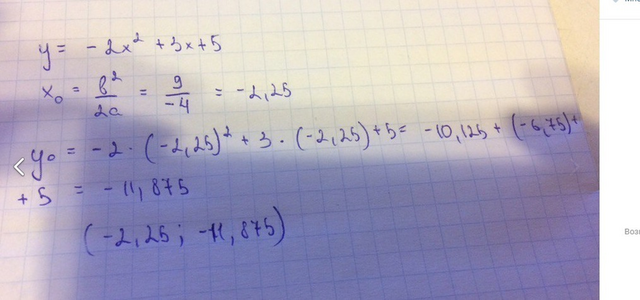 y = -2x² + 3x + 5
x₀ = b²/2a = 9/-4 = -2,25
y₀ = -2 · (-2,25)² + 3 · (-2,25) + 5 = -10,125 + (-6,75) +
+ 5 = -11,875
(-2,25; -11,875)